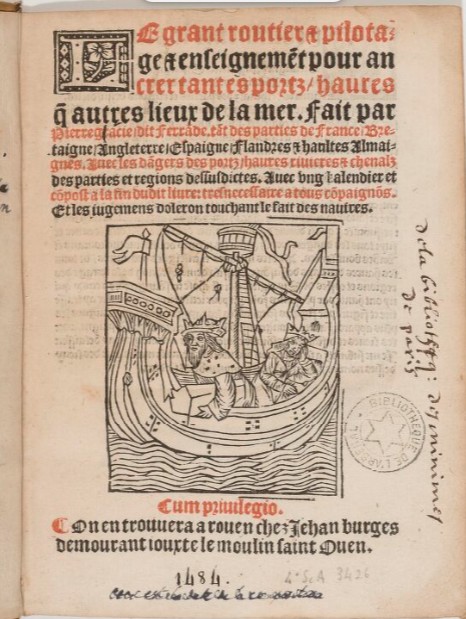 LE grant routier ⁊ pilota-
ge ⁊ enseignemẽt pour an
crer tant es portz/ haures
q̃ autres lieux de la mer. Fait par
Pierre gracie/ dit Ferrãde. tãt des parties de France/ Bre-
taigne/ Angleterre/ Espaigne/ Flandres ⁊ haultes Almai-
gnes. Auec les dãgers des portz/ haures riuieres ⁊ chenalz
des parties et regions dessusdictes. Auec vng kalendier et
cõpost a la fin dudit liure: tresnecessaire a tous cõpaignõs.
Et les iugemens doleron touchant le fait des nauires.
Cum priuilegio.
On en trouuera a rouen chez Jehan burges
demourant iouxte le moulin saint Ouen.
1484.
4° Sc A 3426
de la bibliothq: des minimes
de paris
BIBLIOTHEQUE DE L'ARSENAL